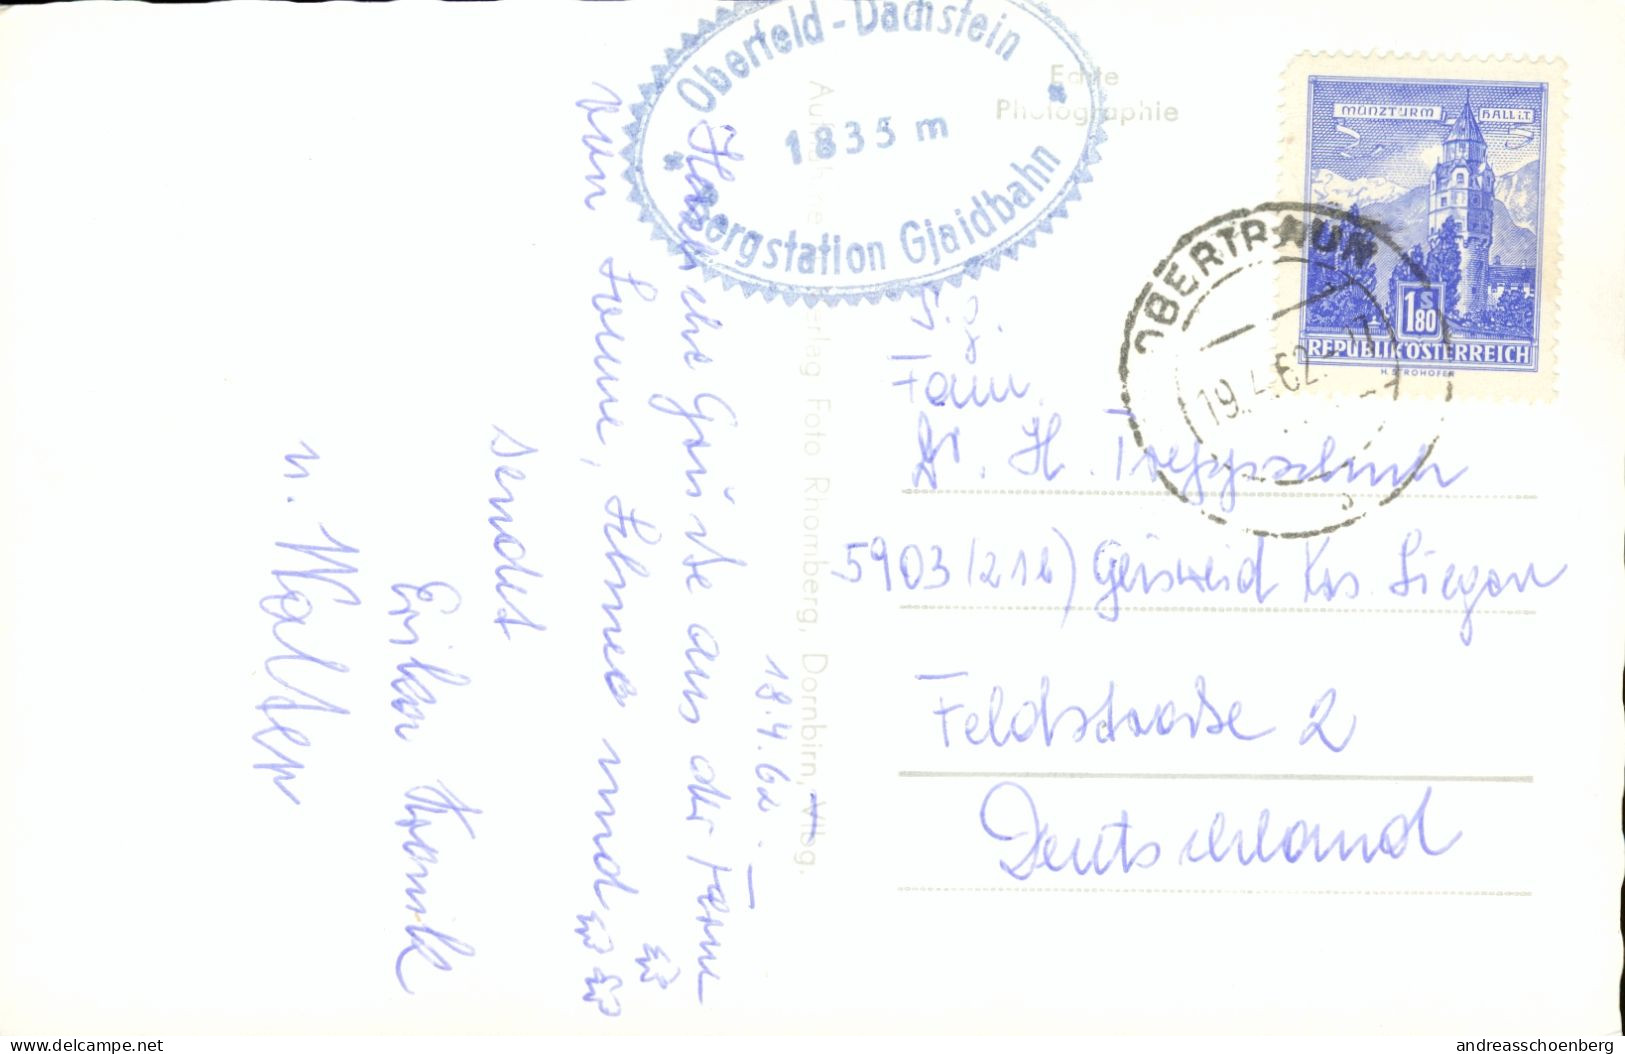 Oberfeld-Dachstein
1835 m
Bergstation Gjaidbahn
Echte
Photographie
MÜNZTURM HALL i.T.
1 S 80
REPUBLIK ÖSTERREICH
H. STROHOFER
OBERTRAUN
19.4.62
18.4.62.
Herzliche Grüße aus der Ferne
von Sonne, Schnee und
sendet
Erika
u. Walter
Verlag Foto Rhomberg, Dornbirn, Vlbg.
Fam.
Dr. H.
5903 (21b) Geisweid Krs. Siegen
Feldstraße 2
Deutschland
delcampe.net
andreasschoenberg